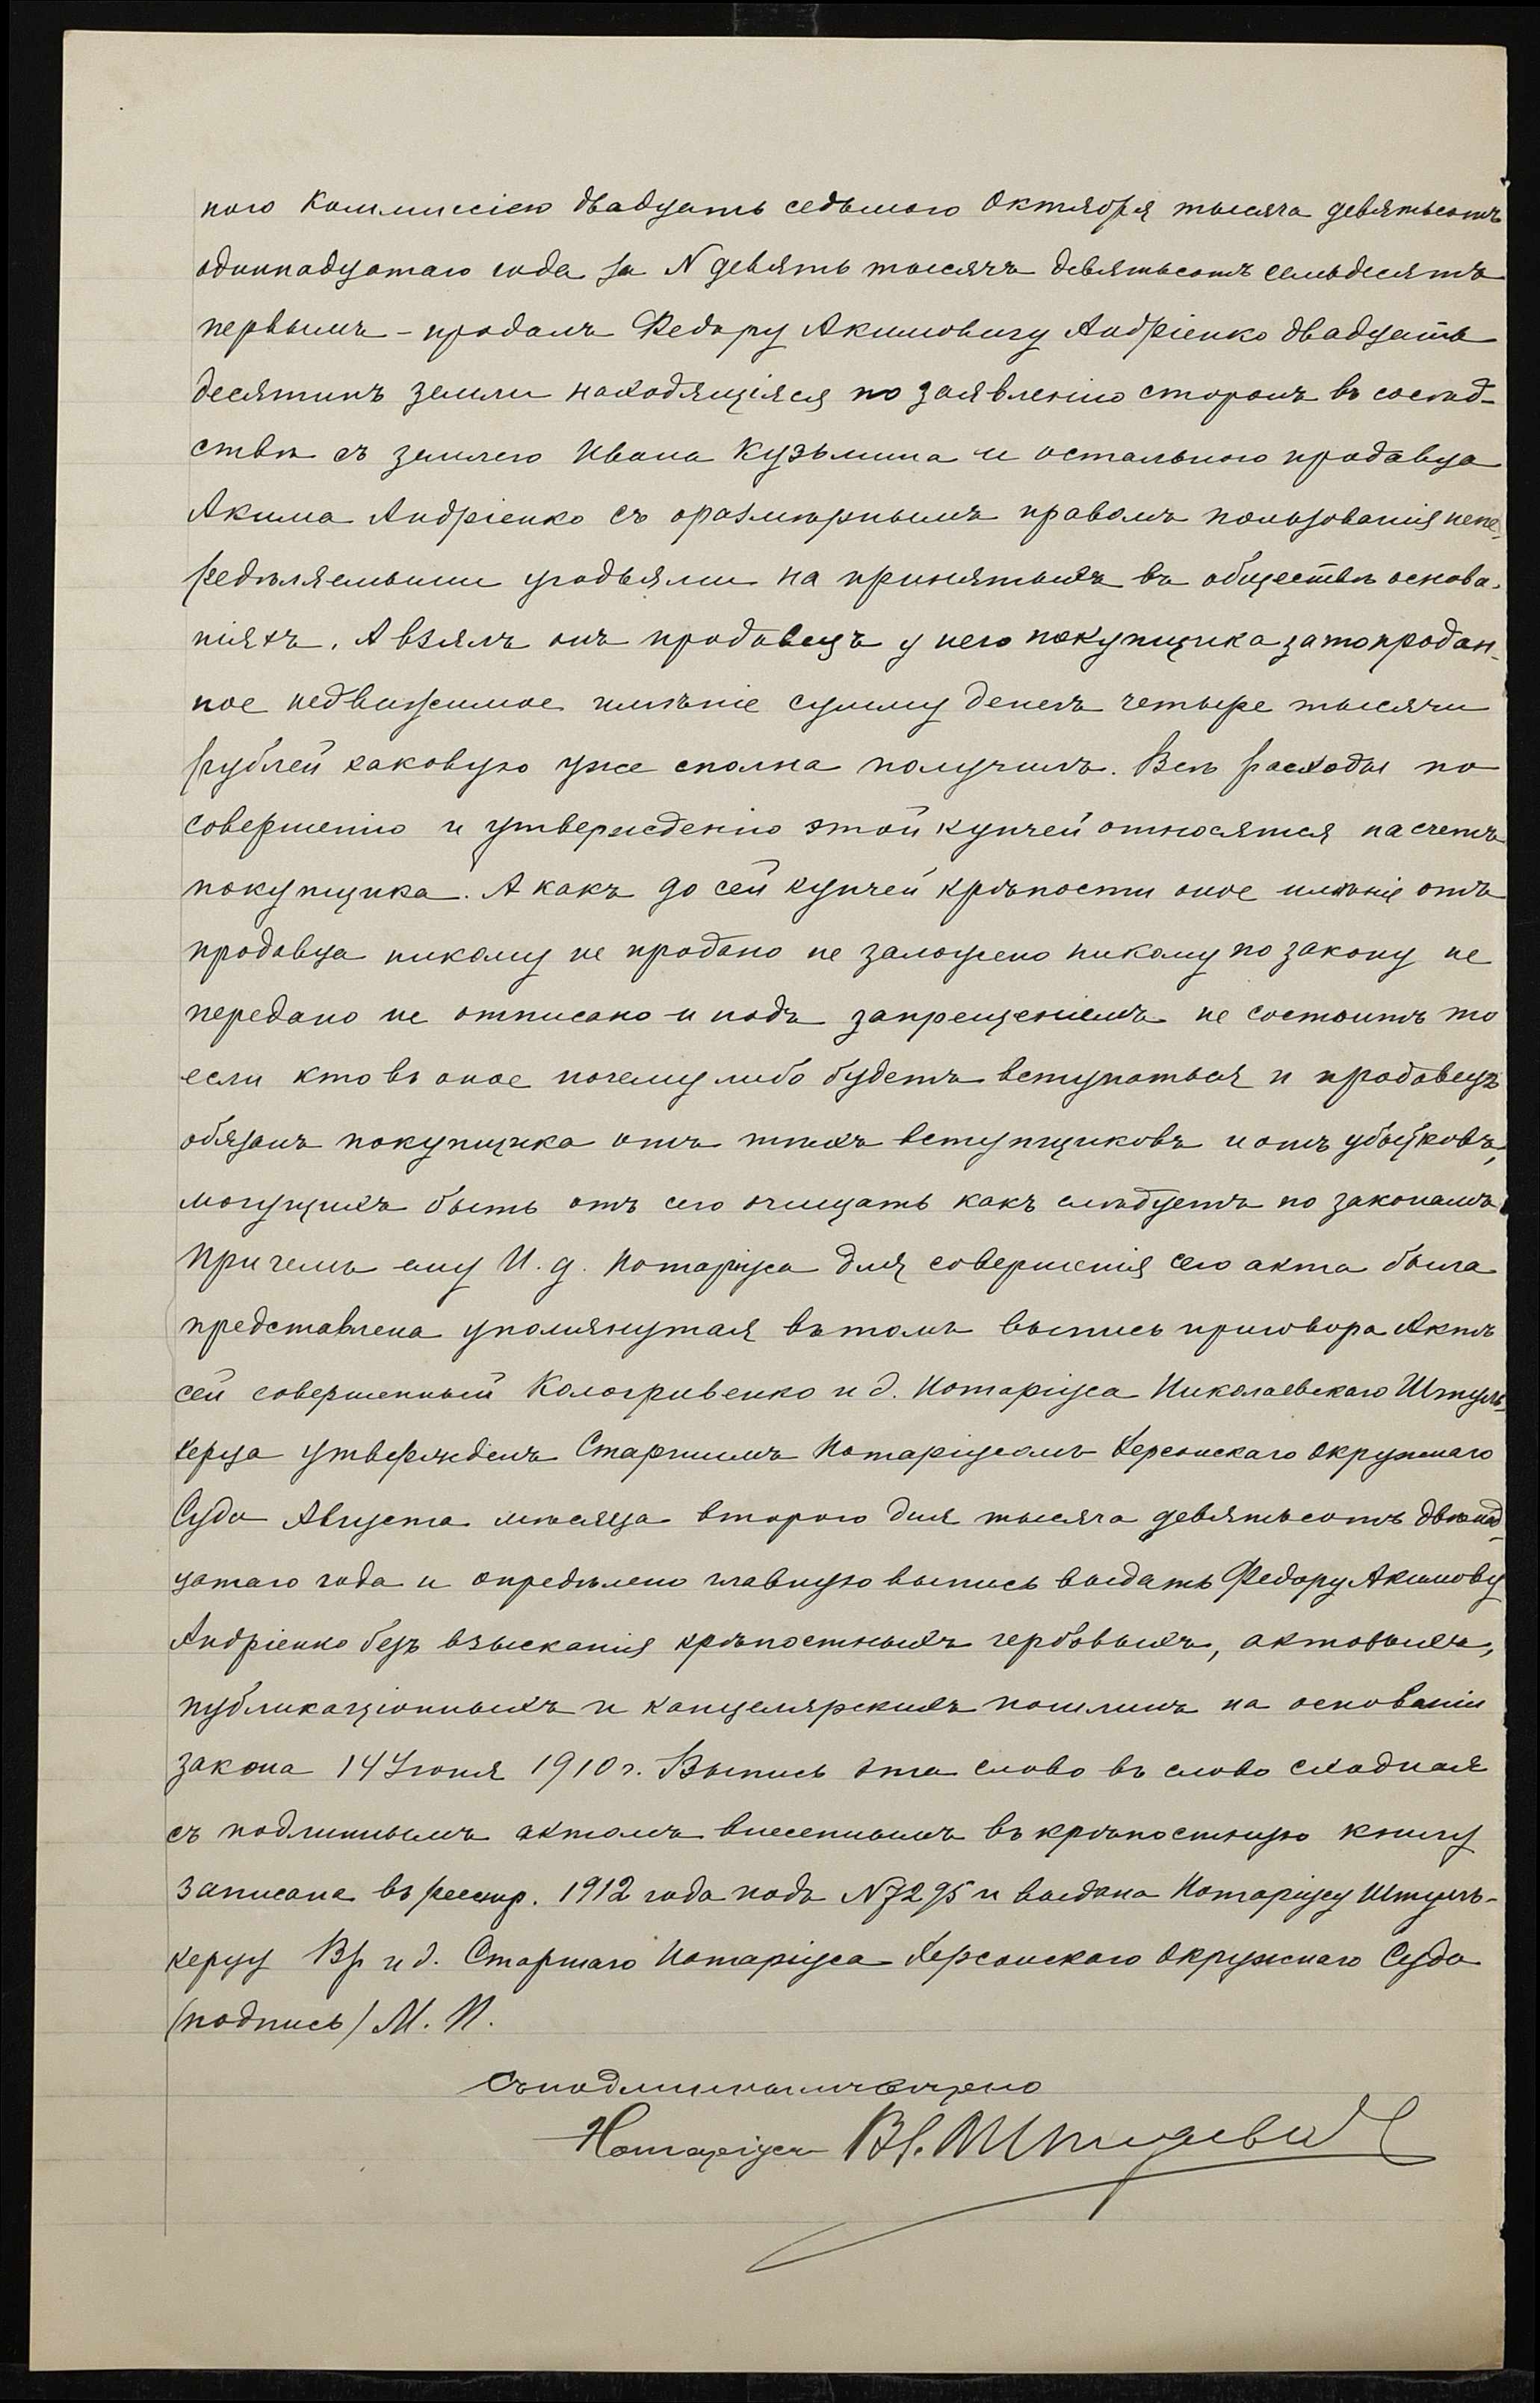 ного Коммиссіею двадцать седьмого Октября тысяча девятьсотъ
одиннадцатаго года за N девять тысячъ девятьсотъ семьдесятъ
первымъ - продалъ Федору Акимовичу Андріенко двадцать
десятинъ земли находящіяся по заявленію сторонъ въ сосѣд-
ствѣ съ землею Ивана Кузьмина и остального продавца
Акима Андріенко съ оразмѣрнымъ правомъ пользованія непе-
редѣляемыми угодьями на принятыхъ въ обществѣ основа-
ніяхъ. А взялъ онъ продавецъ у него покупщика за то продан-
ное недвижимое имѣніе сумму денегъ четыре тысячи
рублей каковую уже сполна получилъ. Всѣ расходы по
совершенію и утвержденію этой купчей относятся на счетъ
покупщика. А какъ до сей купчей крѣпости оное имѣніе отъ
продавца никому не продано не заложено никому по закону не
передано не отписано и подъ запрещеніемъ не состоитъ то
если кто въ оное почему либо будетъ вступаться и продавецъ
обязанъ покупщика отъ тѣхъ вступщиковъ и отъ убытковъ,
могущихъ быть отъ сего очищать какъ слѣдуетъ по законамъ
Причемъ ему И. д. Нотаріуса для совершенія сего акта была
представлена упомянутая въ томъ выпись приговора Актъ
сей совершенный Кологривенко и д. Нотаріуса Николаевскаго Штуль-
керца утвержденъ Старшимъ Нотаріусомъ Херсонскаго Окружнаго
Суда Августа мѣсяца второго дня тысяча девятьсотъ двѣнад-
цатаго года и опредѣлено главную выпись выдать Федору Акимову
Андріенко безъ взысканія крѣпостныхъ гербовыхъ, актовыхъ,
публикаціонныхъ и канцелярскихъ пошлинъ на основаніи
закона 14 Іюня 1910 г. Выпись эта слово въ слово сходная
съ подлиннымъ актомъ внесеннымъ въ крѣпостную книгу
записана въ реестр. 1912 года подъ N 7295 и выдана Нотаріусу Штуль-
керцу Вр и д. Старшаго Нотаріуса Херсонскаго Окружнаго Суда
(подпись) М. П.
Съ подлиннымъ вѣрно
Нотаріусъ Вр.